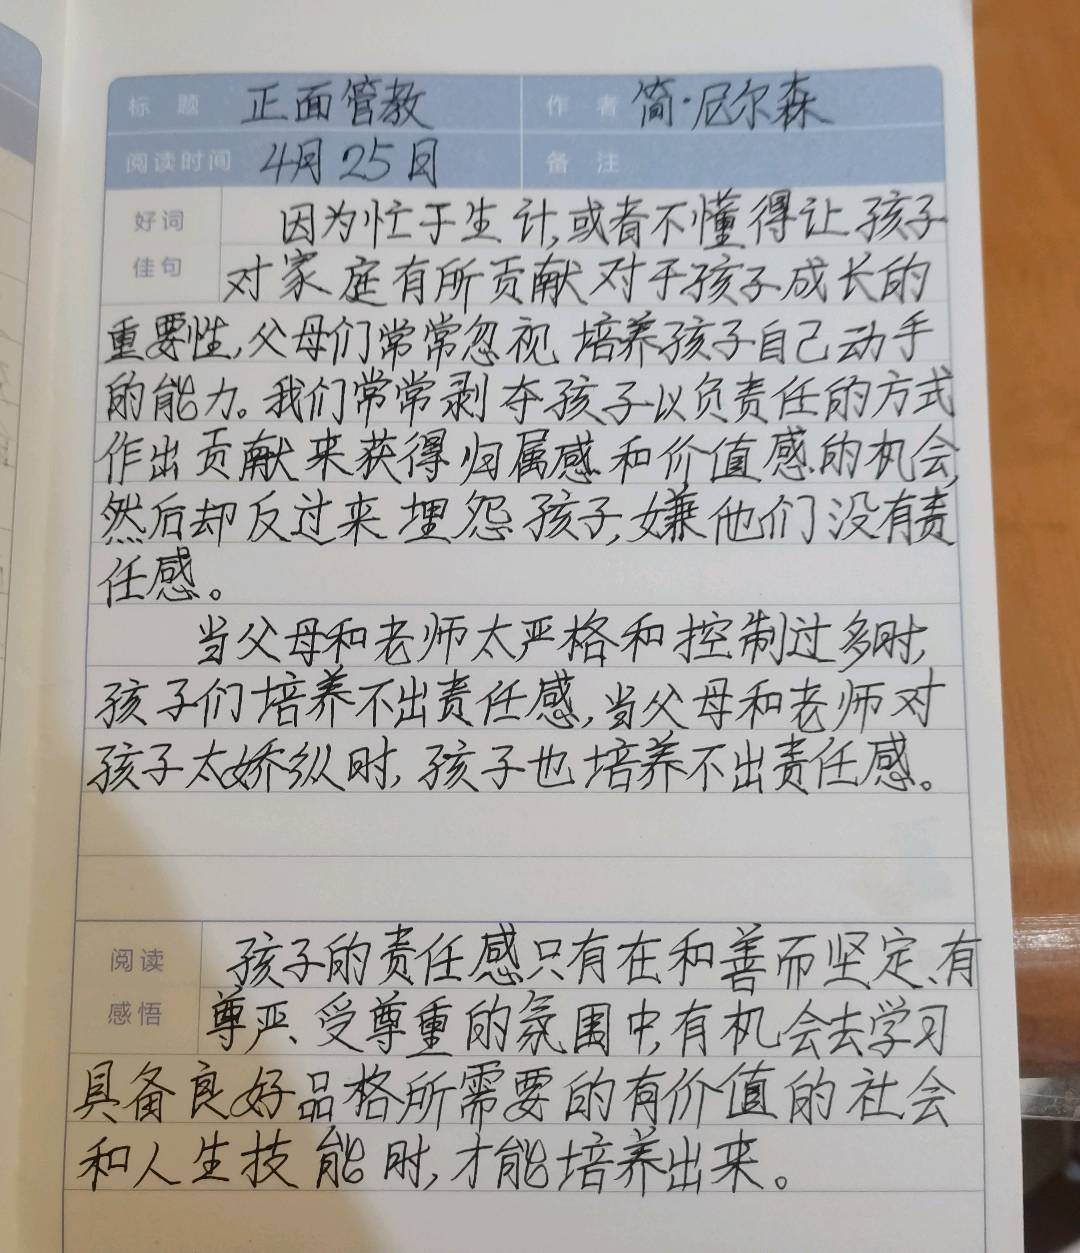 标 题 正面管教 作 者 简·尼尔森
阅读时间 4月25日 备 注
好词 因为忙于生计,或者不懂得让孩子
佳句 对家庭有所贡献对于孩子成长的
重要性,父母们常常忽视培养孩子自己动手
的能力。我们常常剥夺孩子以负责任的方式
作出贡献来获得归属感和价值感的机会,
然后却反过来埋怨孩子,嫌他们没有责
任感。
当父母和老师太严格和控制过多时,
孩子们培养不出责任感,当父母和老师对
孩子太娇纵时,孩子也培养不出责任感。
阅读 孩子的责任感只有在和善而坚定、有
感悟 尊严、受尊重的氛围中,有机会去学习
具备良好品格所需要的有价值的社会
和人生技能时,才能培养出来。